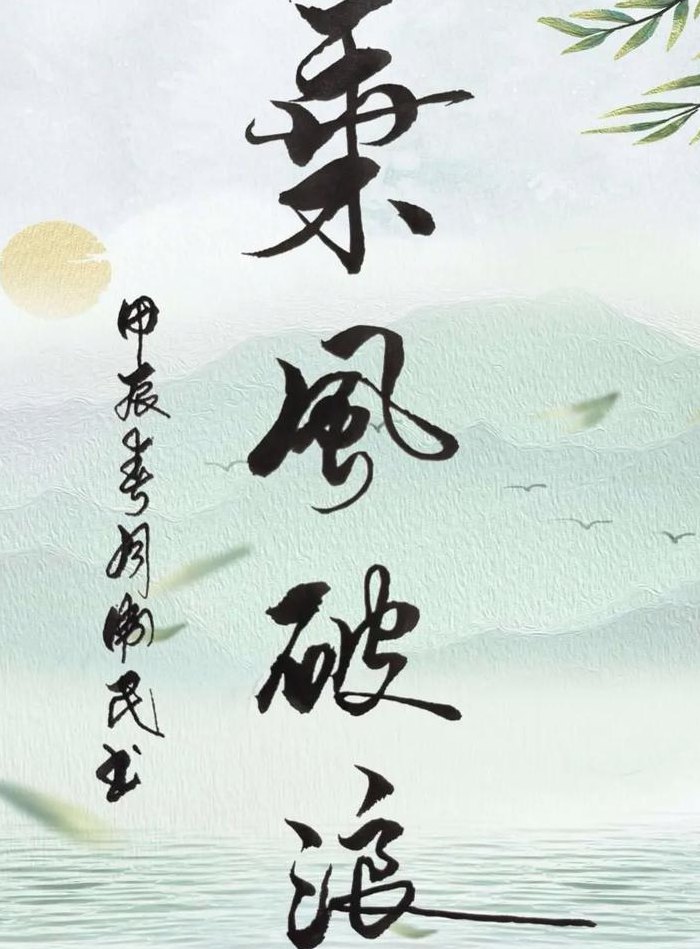 乘風破浪
甲辰春月衛民书